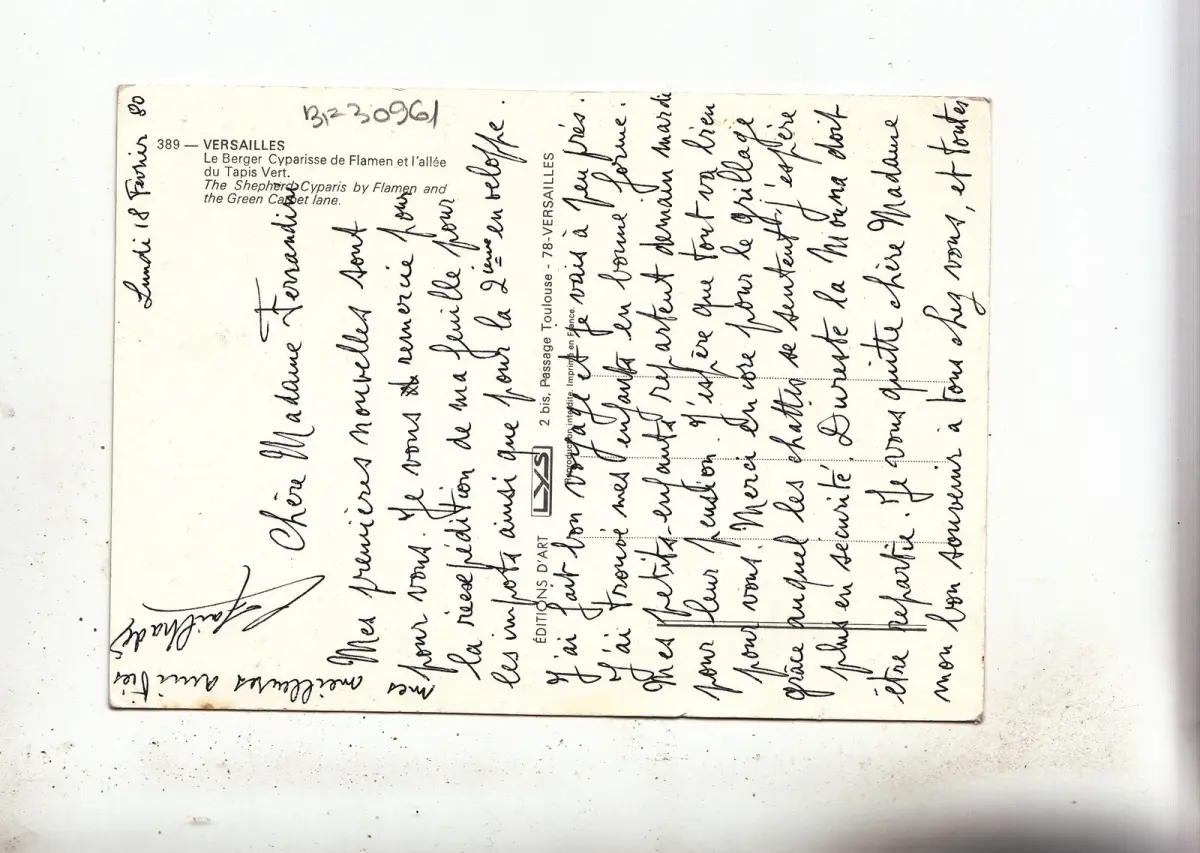 BF30961
389 — VERSAILLES
Le Berger Cyparisse de Flamen et l'allée
du Tapis Vert.
The Shepherd Cyparis by Flamen and
the Green Carpet lane.
ÉDITIONS D'ART LYS 2 bis, Passage Toulouse - 78-VERSAILLES
Reproduction interdite. Imprimé en France.
Lundi 18 Février 80
Chère Madame Ferrandino
Mes premières nouvelles sont
pour vous. Je vous remercie pour
la réexpédition de ma feuille pour
les impots ainsi que pour la 2ième enveloppe.
J'ai fait bon voyage et je vais à peu près.
J'ai trouvé mes enfants en bonne forme.
Mes petits-enfants repartent demain mardi
pour leur pension. J'espère que tout va bien
pour vous. Merci encore pour le grillage
grâce auquel les chattes se sentent j'espère
plus en sécurité. Dureste la Mouna doit
être repartie. Je vous quitte chère Madame
mon bon souvenir à tous chez vous, et toutes
mes meilleures amitiés